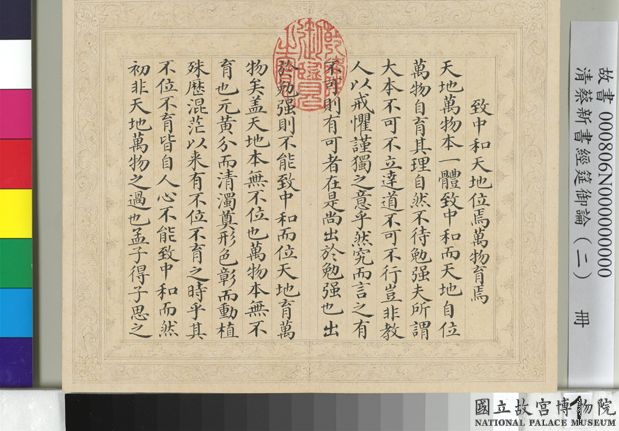 致中和天地位焉萬物育焉
天地萬物本一體致中和而天地自位
萬物自育其理自然不待勉强夫所謂
大本不可不立達道不可不行豈非教
人以戒懼謹獨之意乎然究而言之有
不可則有可者在是尚出於勉强也出
於勉强則不能致中和而位天地育萬
物矣盖天地本無不位也萬物本無不
育也元黃分而清濁奠形色彰而動植
殊歷混茫以来有不位不育之時乎其
不位不育皆自人心不能致中和而然
初非天地萬物之過也孟子得子思之
故書 000806N000000000
清蔡新書經筵御論(二) 冊
1
國立故宮博物院
NATIONAL PALACE MUSEUM